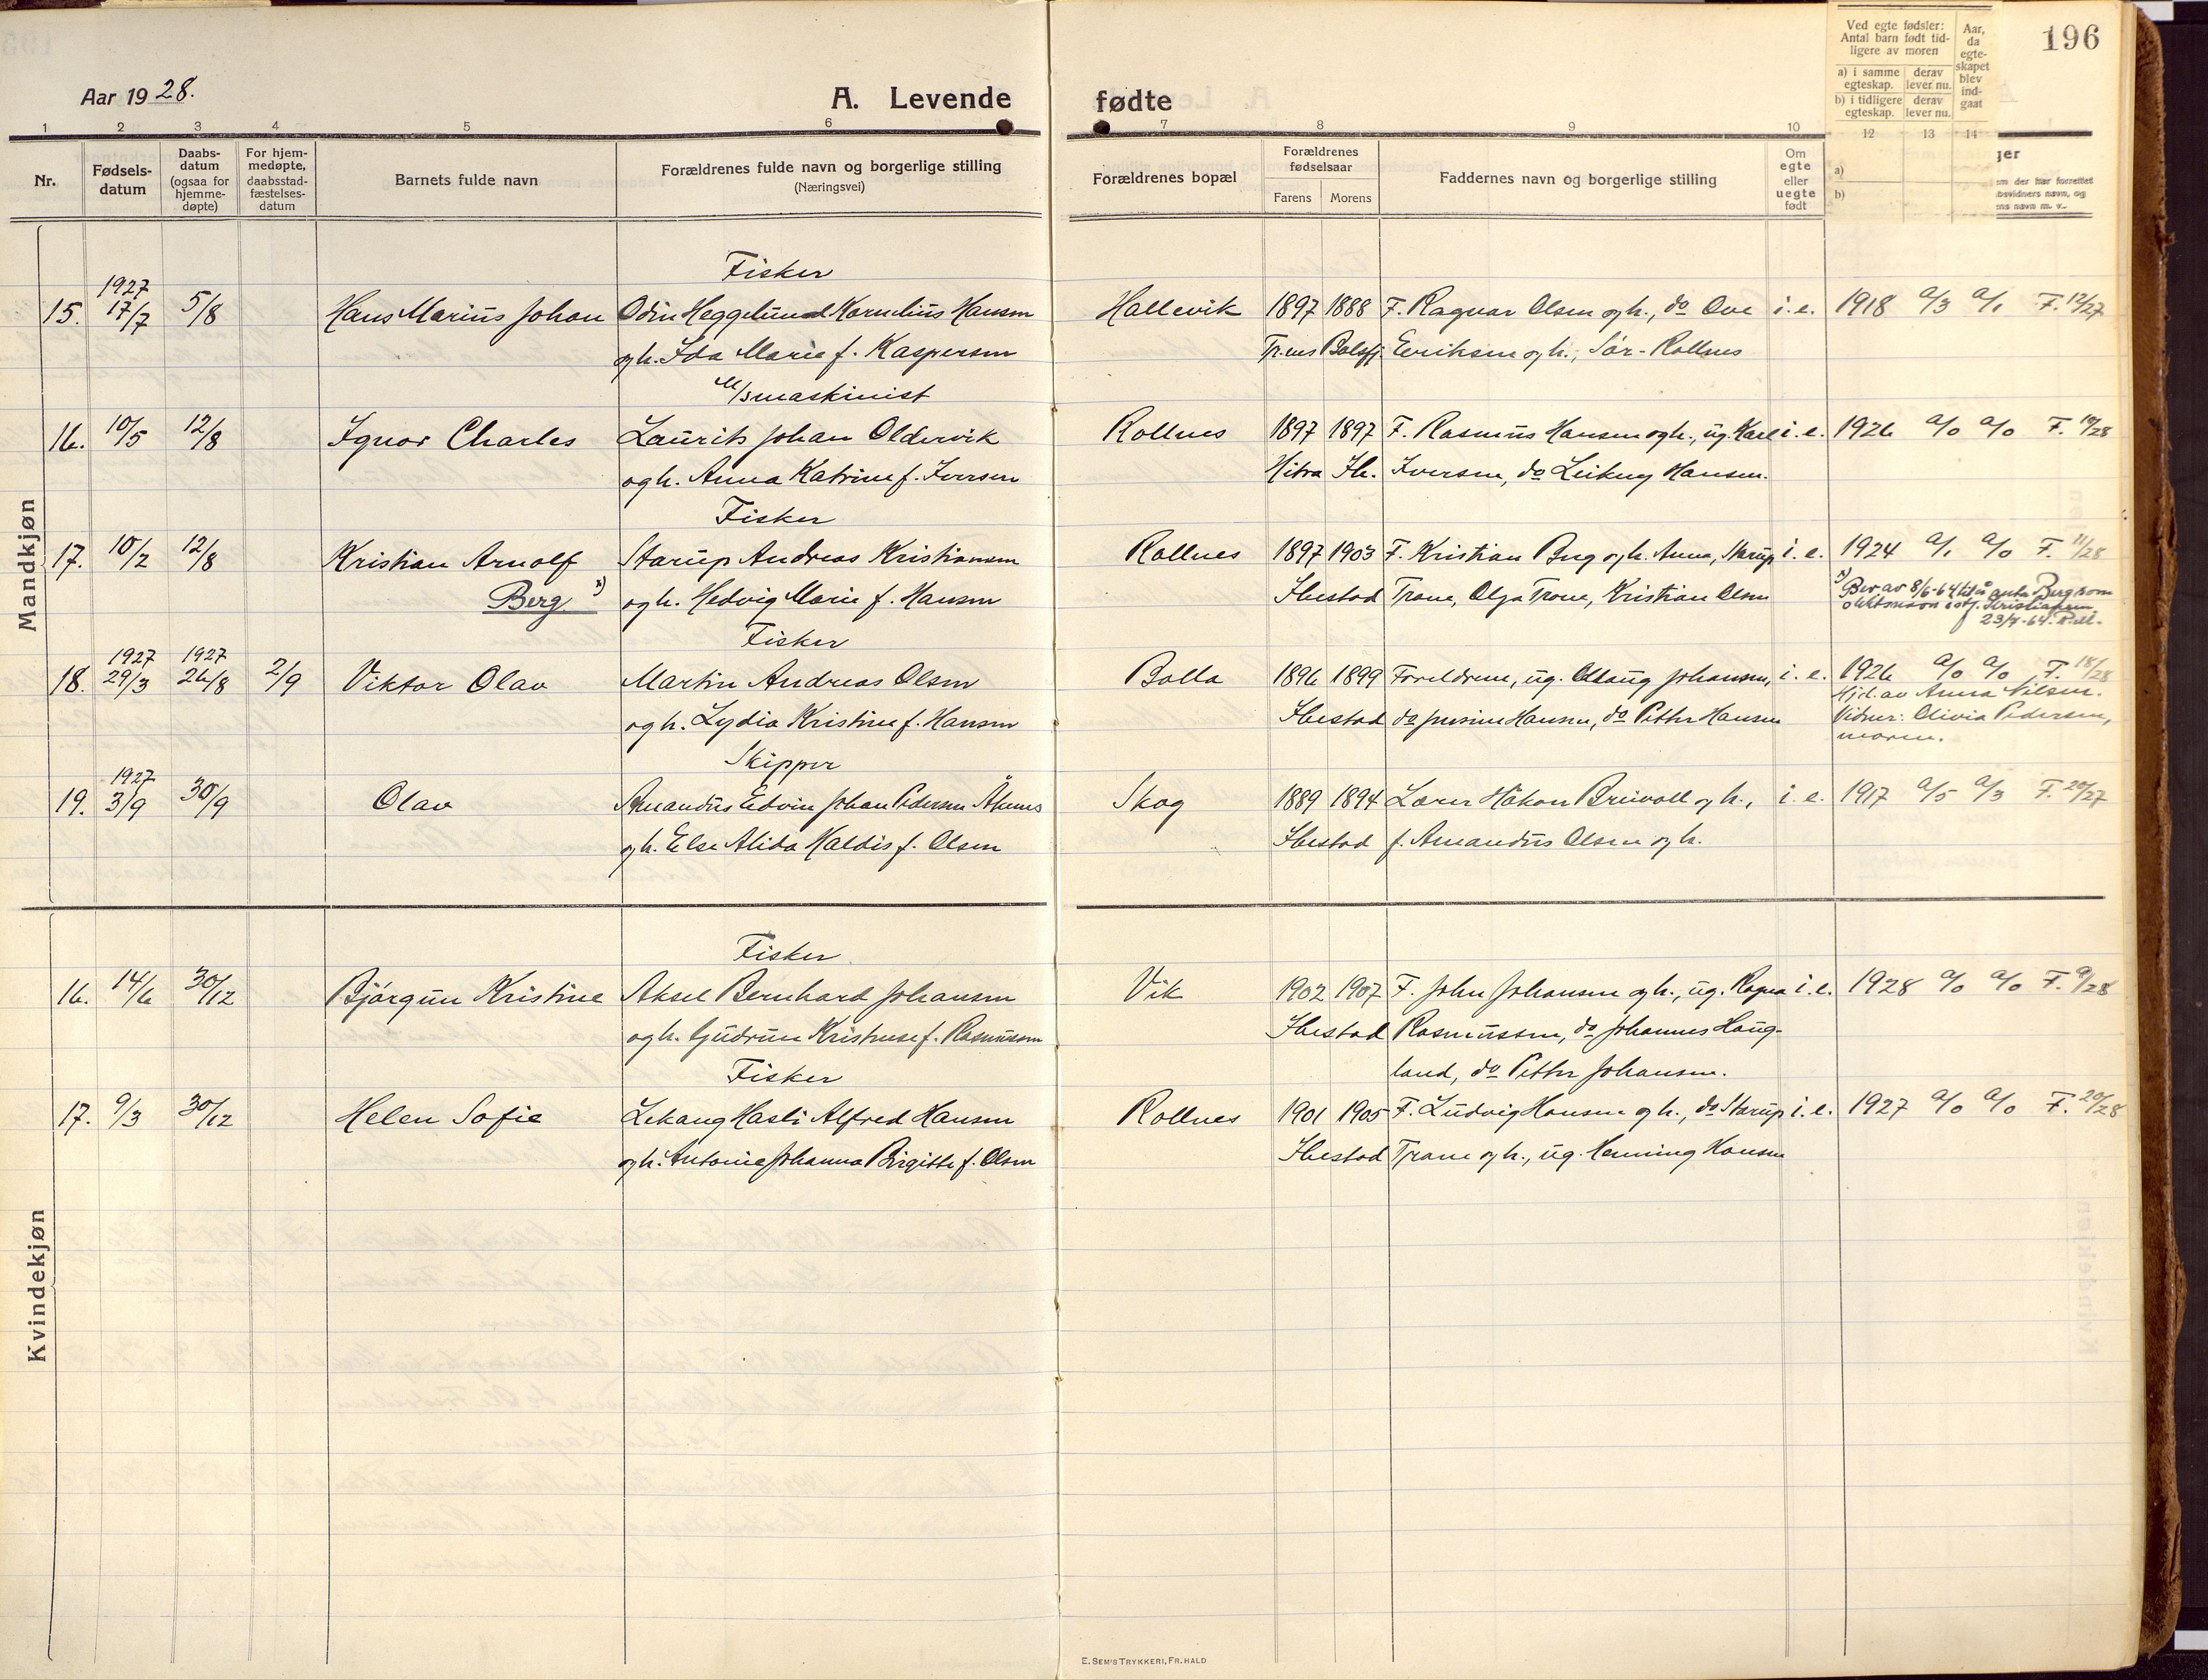 196
Aar 1928.
A. Levende fødte
Ved egte fødsler: Antal barn født tidligere av moren
a) i samme egteskap. derav lever nu.
b) i tidligere egteskap. derav lever nu.
Aar, da egteskapet blev indgaat
1 2 3 4 5 6 7 8 9 10 12 13 14
Nr.
Fødselsdatum
Daabsdatum (ogsaa for hjemmedøpte)
For hjemmedøpte, daabsstadfæstelsesdatum
Barnets fulde navn
Forældrenes fulde navn og borgerlige stilling
(Næringsvei)
Forældrenes bopæl
Forældrenes fødselsaar
Farens Morens
Faddernes navn og borgerlige stilling
Om egte eller uegte født
a)
b)
ger
em der har forrettet
bsvidners navn, og
ens navn m. v.
Mandkjøn
1927 Fisker
15. 17/7 5/8 Hans Marius Johan Odin Heggelund Kornelius Hansen Hallevik 1897 1888 F. Ragnar Olsen og h., do Ove i. e. 1918 a/3 a/1 F. 12/27
og h. Ida Marie f. Kaspersen Tr.øens Balsfj. Eeriksen og h., Sør-Rollnes
M/smaskinist
16. 10/5 12/8 Ignar Charles Laurits Johan Oldervik Rollnes 1897 1897 F. Rasmus Hansen og h., ug. Karl i. e. 1926 a/0 a/0 F. 10/28
og h. Anna Katrine f. Iversen Hitra Ib. Iversen, do Leikny Hansen.
Fisker
17. 10/2 12/8 Kristian Arnolf Starup Andreas Kristiansen Rollnes 1897 1903 F. Kristian Berg og h. Anna, Starup i. e. 1924 a/1 a/0 F. 11/28
Berg x) og h. Hedvig Marie f. Hansen Ibestad Trane, Olga Trane, Kristian Olsen
x) Bev. av 8/6-64 til å anta Berg som
slektsnavn istf. Kristiansen
23/7-64. Roll.
1927 1927 Fisker
18. 29/3 26/8 2/9 Viktor Olav Martin Andreas Olsen Bolla 1896 1899 Foreldrene, ug. Ollaug Johansen, i. e. 1926 a/0 a/0 F. 18/28
og h. Lydia Kristine f. Hansen Ibestad do Jensine Hansen, do Petter Hansen
Hj.d. av Anna Nilsen.
Vidner: Olivia Pedersen,
moren.
1927 Skipper
19. 3/9 30/9 Olav Amandus Edvin Johan Pedersen Åkenes Skog 1889 1894 Lærer Håkon Breivoll og h., i. e. 1917 a/5 a/3 F. 20/27
og h. Else Alida Haldis f. Olsen Ibestad f. Amandus Olsen og h.
Kvindekjøn
Fisker
16. 14/6 30/12 Bjørgun Kristine Aksel Bernhard Johansen Vik 1902 1907 F. John Johansen og h., ug. Ragna i. e. 1928 a/0 a/0 F. 9/28
og h. Gudrun Kristense f. Rasmussen Ibestad Rasmussen, do Johannes Haug-
land, do Petter Johansen.
Fisker
17. 9/3 30/12 Helen Sofie Lekang Hasli Alfred Hansen Rollnes 1901 1905 F. Ludvig Hansen og h., do Starup i. e. 1927 a/0 a/0 F. 20/28
og h. Antonie Johanna Birgitte f. Olsen Ibestad Trane og h., ug. Henning Hansen
E. SEM'S TRYKKERI, FR.HALD